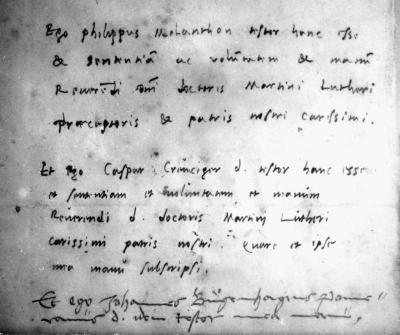 Ego philippus Melanthon testor hanc esse
& sententiã ac volũtatem & manũ
Reverẽdi dñi doctoris Martini Lutheri
præceptoris & patris nostri carissimi.
Et ego Caspar Creuciger d. testor hanc esse
et sententiam et voluntatem et manum
Reverendi d. doctoris Martini Lutheri
carissimi patris nostri. Quare et ipse
mea manu subscripsi.
Et ego Johannes Bugenhagius Pome
ranus d. idem testor mea manu